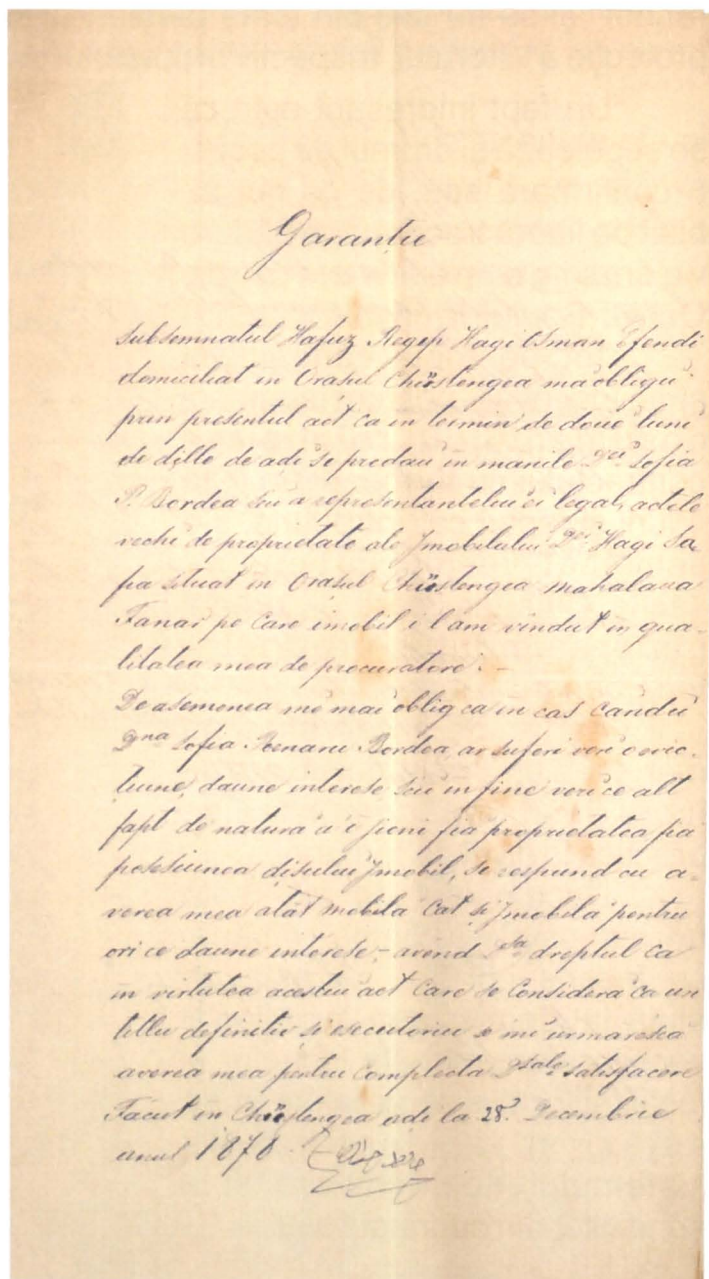 Garanție
Subsemnatul Hafuz Regep Hagi Osman Efendi
domiciliat in Orasul Chiustengea mă obligŭ
prin presentul act ca in termin de doue luni
de dille de adi se predaŭ in manile D<sup>nei</sup> Sofia
P. Bordea seŭ a representantelui ei legal, actele
vechi de proprietate ale Imobilului D<sup>nei</sup> Hagi Sa
fia situat in Orasul Chiustengea mahalaua
Fanar pe care imobil i l'am vindut in qua-
litatea mea de procuratore. –
De asemenea mĕ mai oblig ca in cas candŭ
D<sup>na</sup> Sofia Penaru Bordea, ar suferi veri o evic-
tiune, daune interese seŭ in fine veri ce alt
fapt de natură a'i fia proprietatea fia
posesiunea disului Imobil, se respund cu a-
verea mea atât mobilă cat si Imobilă pentru
ori ce daune interese, avênd D<sup>sa</sup> dreptul ca
in virtutea acestui act care se consideră ca un
titlu definitiv si esecutoriu se mĕ urmarescă
averea mea pentru complecta D<sup>sale</sup> satisfacere
Facut in Chiustengea adi la 28. Decembrie
anul 1878